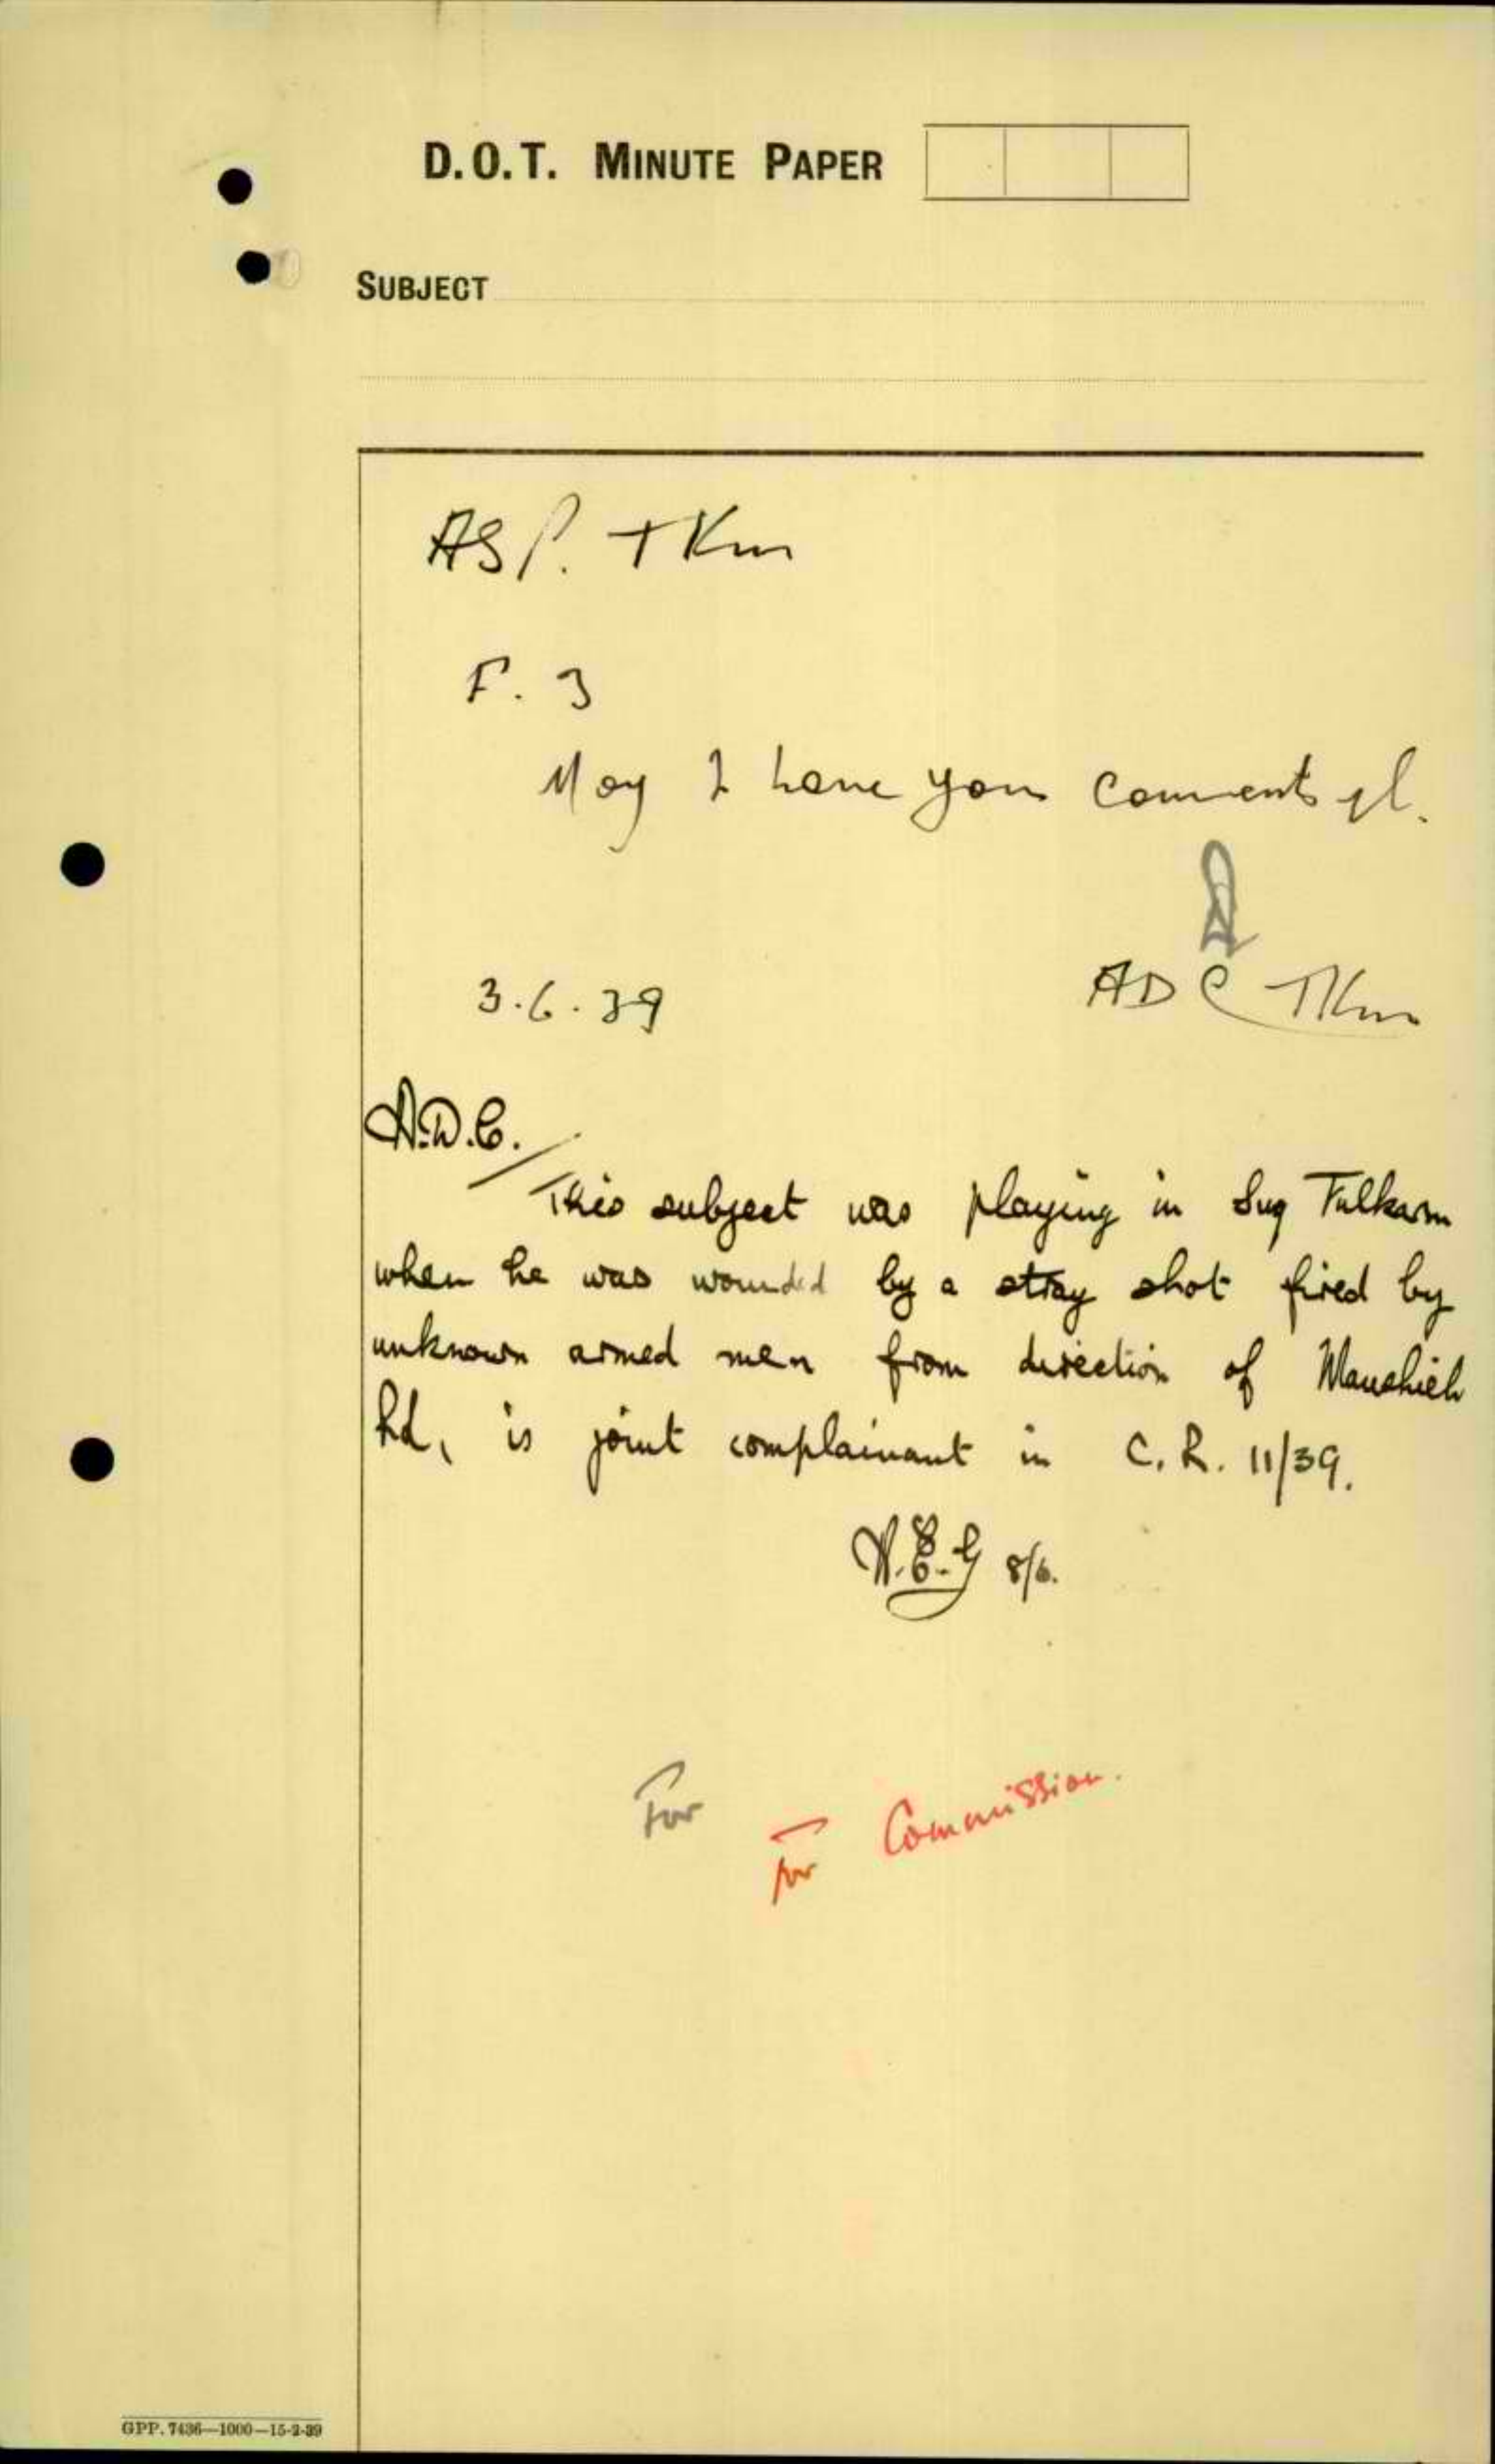 D.O.T. MINUTE PAPER
SUBJECT
ASP. TKm
F. 3
May I have your comments pl.
3.6.39
ADC TKm
A.D.C.
This subject was playing in Suq Tulkarm
when he was wounded by a stray shot fired by
unknown armed men from direction of Manshieh
Rd, is joint complainant in C.R. 11/39.
8/6.
For
For Commission.
GPP. 7436—1000—15-2-39